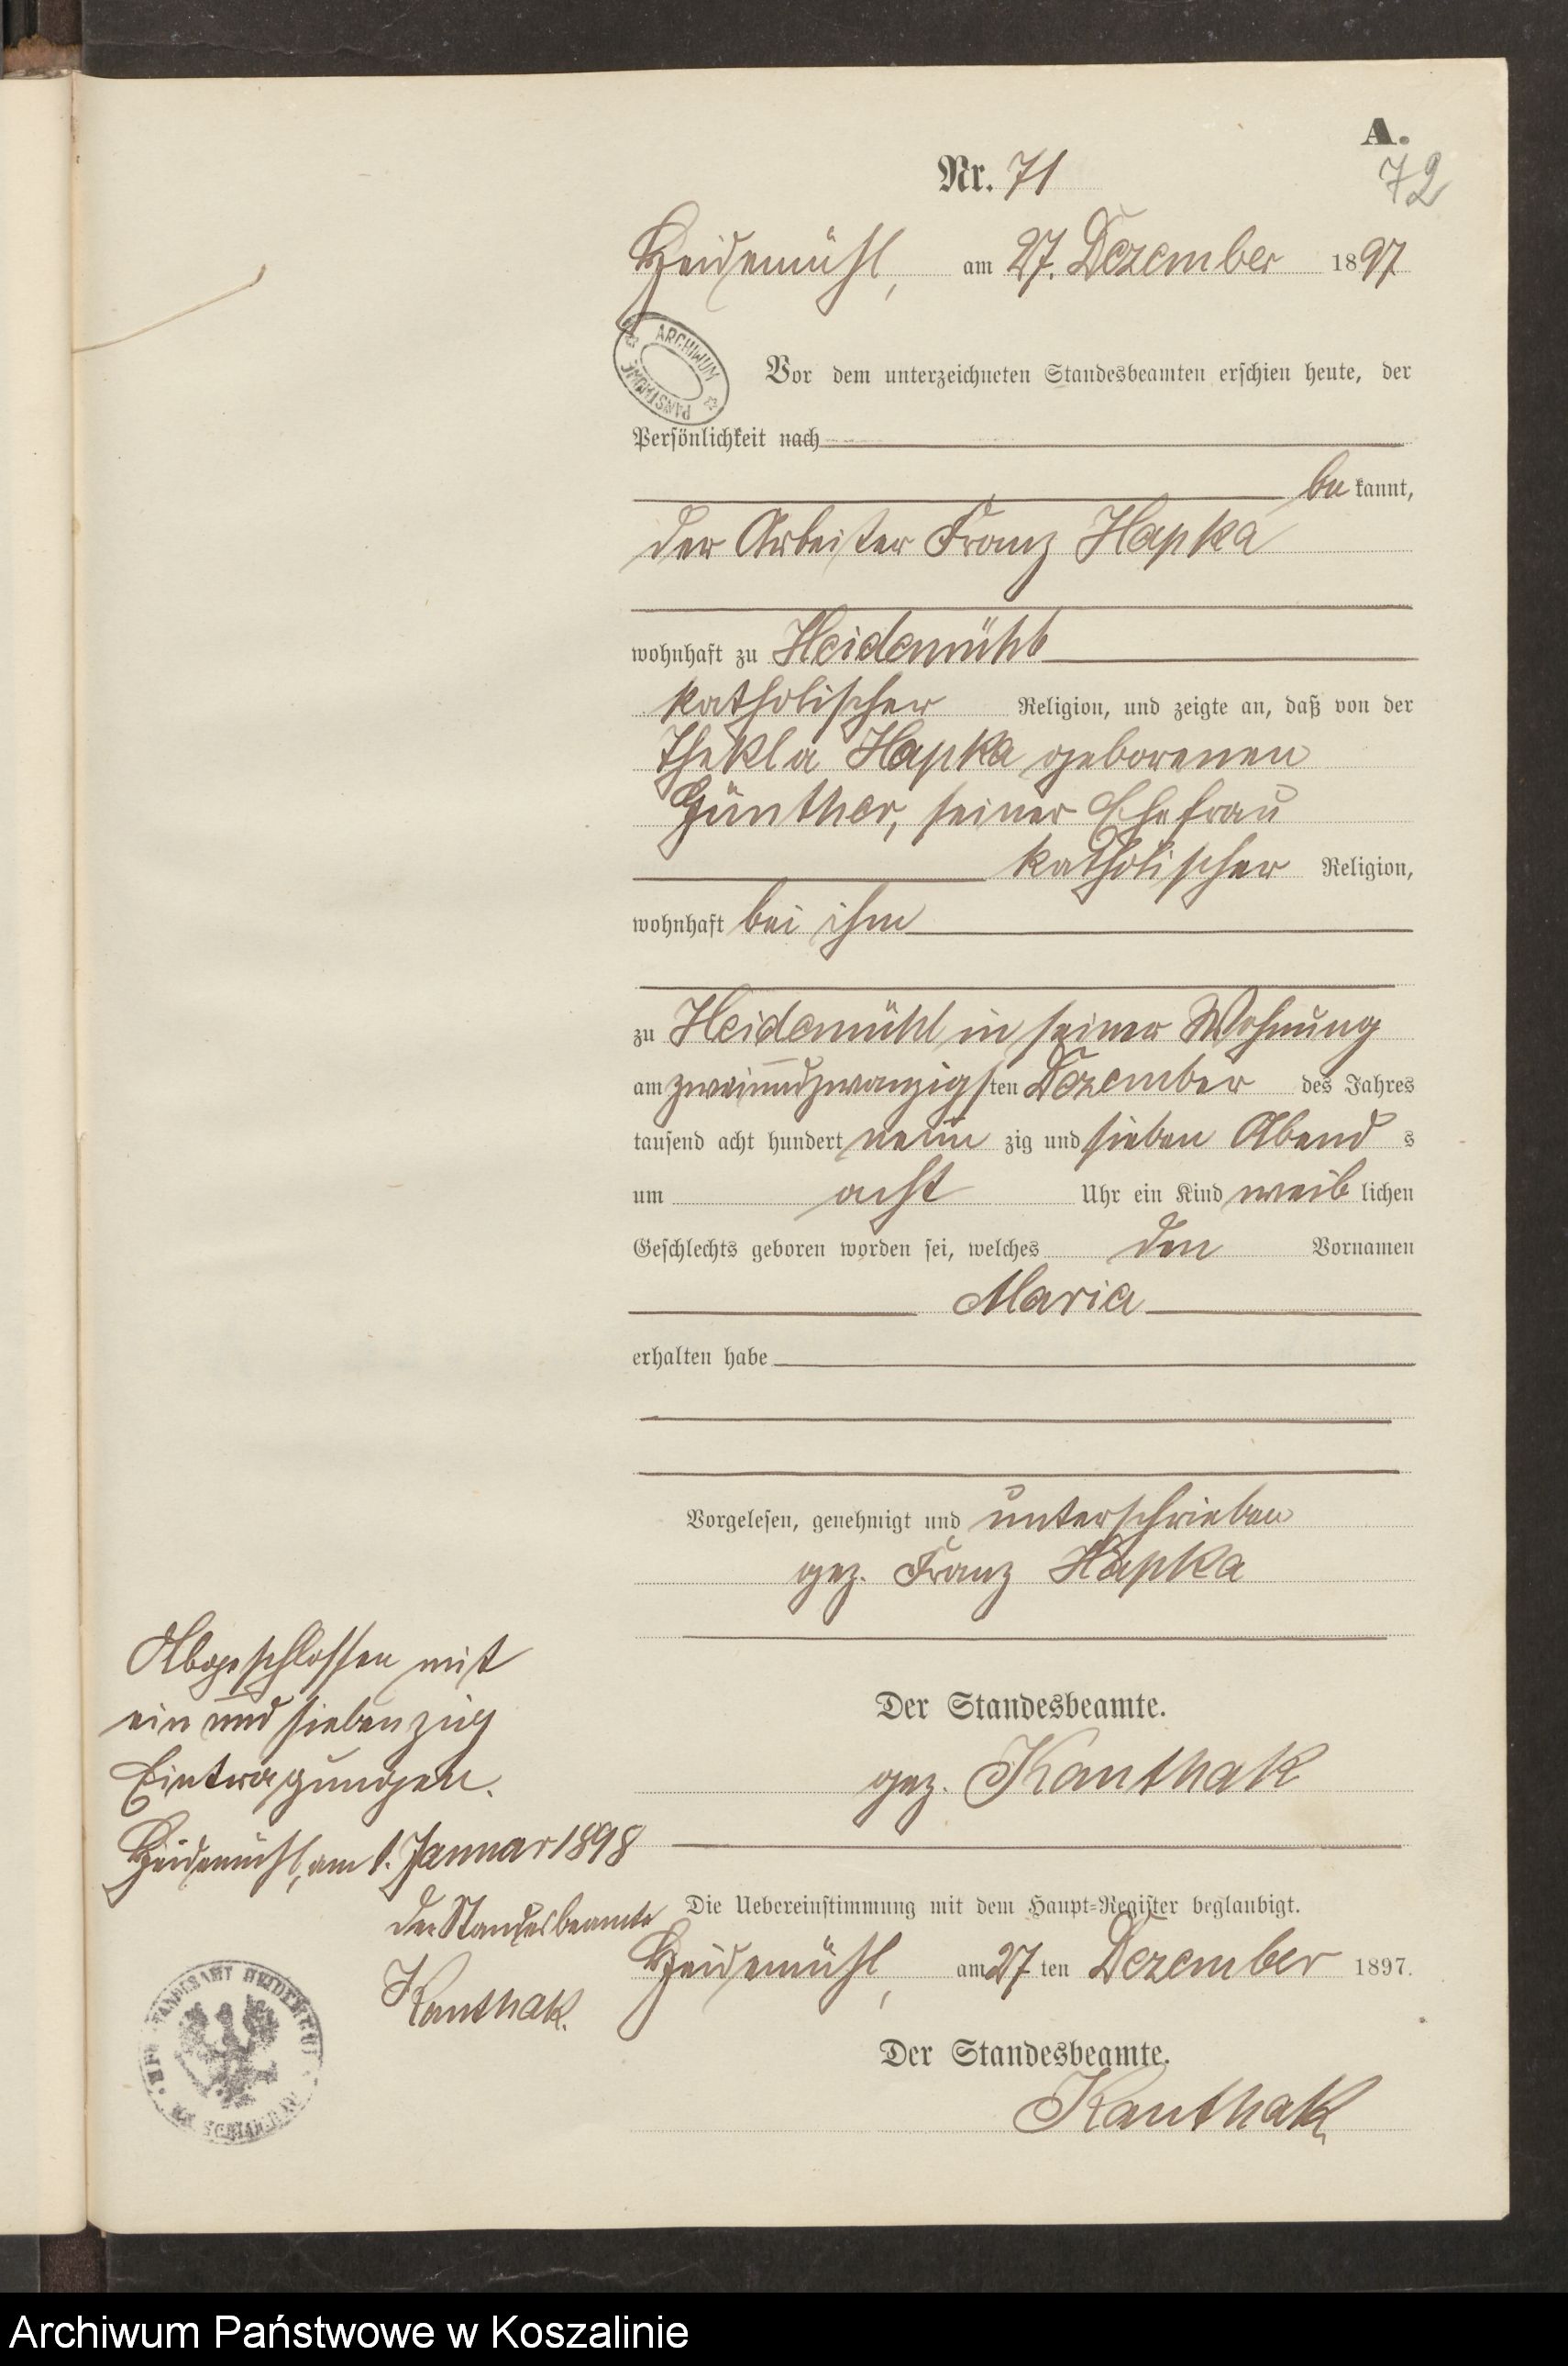 A.
Nr. 71
72
Heidemühl, am 27. Dezember 1897
ARCHIWUM PAŃSTWOWE
Vor dem unterzeichneten Standesbeamten erschien heute, der
Persönlichkeit nach
be kannt,
der Arbeiter Franz Hapka
wohnhaft zu Heidemühl
katholischer Religion, und zeigte an, daß von der
Thekla Hapka geborenen
Günther, seiner Ehefrau
katholischer Religion,
wohnhaft bei ihm
zu Heidemühl in seiner Wohnung
am zweiundzwanzigsten Dezember des Jahres
tausend acht hundert neun zig und sieben Abend s
um acht Uhr ein Kind weib lichen
Geschlechts geboren worden sei, welches den Vornamen
Maria
erhalten habe
Vorgelesen, genehmigt und unterschrieben
gez. Franz Hapka
Der Standesbeamte.
gez. Kanthak
Die Uebereinstimmung mit dem Haupt-Register beglaubigt.
Heidemühl, am 27 ten Dezember 1897.
Der Standesbeamte.
Kanthak
Abgeschlossen mit
ein und siebenzig
Eintragungen.
Heidemühl, am 1. Januar 1898
Der Standesbeamte
Kanthak.
STANDESAMT
Archiwum Państwowe w Koszalinie